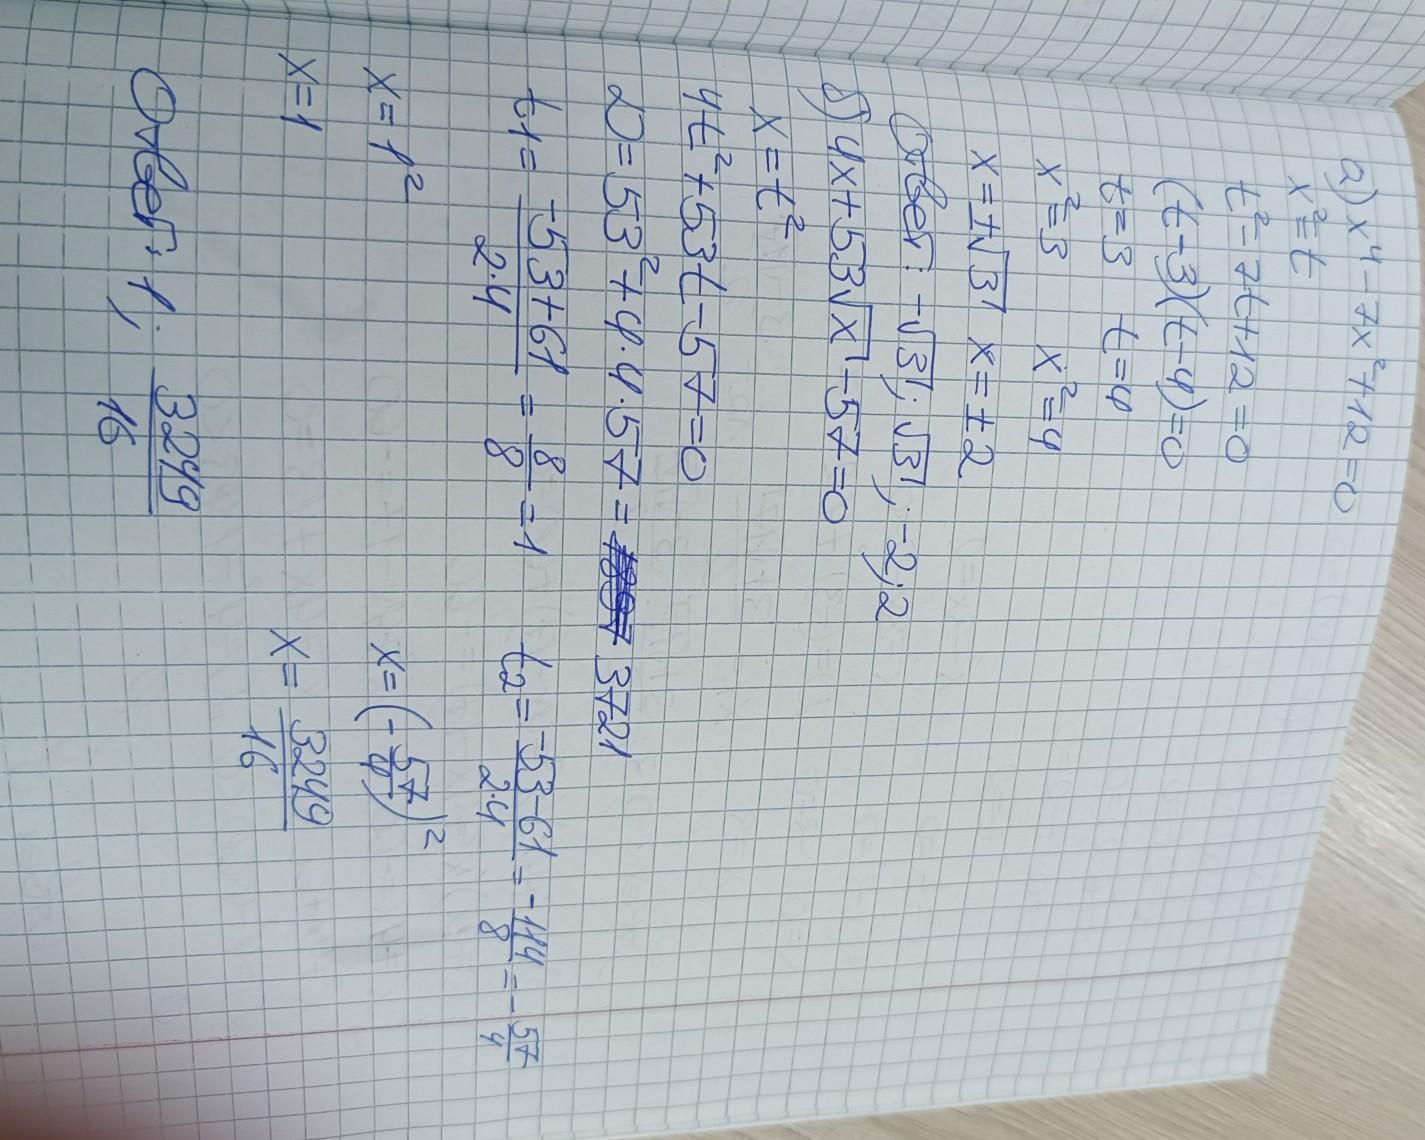 а) x⁴-7x²+12=0
x²=t
t²-7t+12=0
(t-3)(t-4)=0
t=3 t=4
x²=3 x²=4
x=±√3 x=±2
Ответ: -√3; √3; -2; 2
б) 4x+53√x-57=0
x=t²
4t²+53t-57=0
D=53²+4·4·57= 3721
t1= (-53+61)/(2·4) = 8/8 =1 t2= (-53-61)/(2·4) = -114/8 = -57/4
x=1² x=(-57/4)²
x=1 x= 3249/16
Ответ: 1; 3249/16